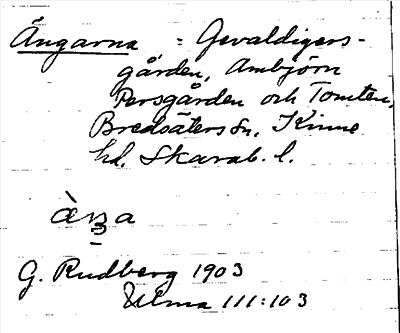 Ängarna = Gevaldigers-
gården, Ambjörn
Persgården och Tomten,
Bredsäters sn, Kinne
hd. Skarab. l.
G. Rudberg 1903
Ulma 111:103